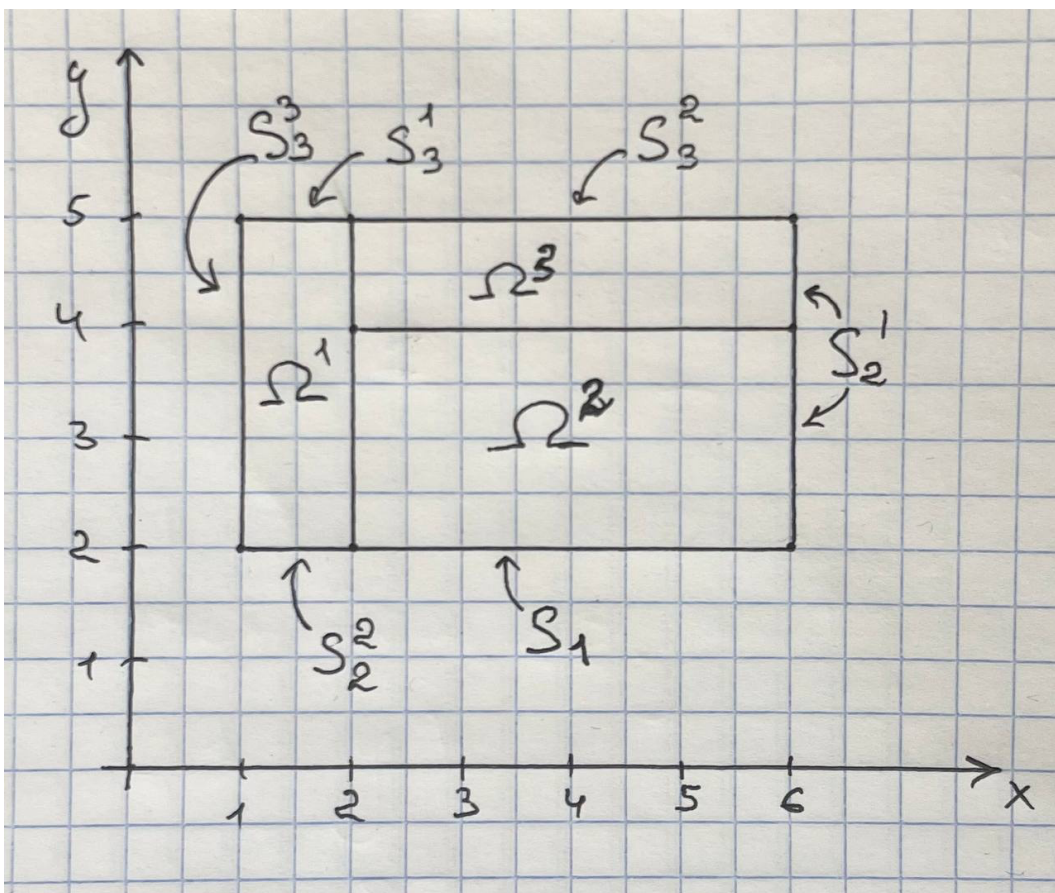 y
S₃³ S₃¹ S₃²
5
Ω³
4
S₂¹
Ω¹
Ω²
3
2
S₂² S₁
1
1 2 3 4 5 6 x